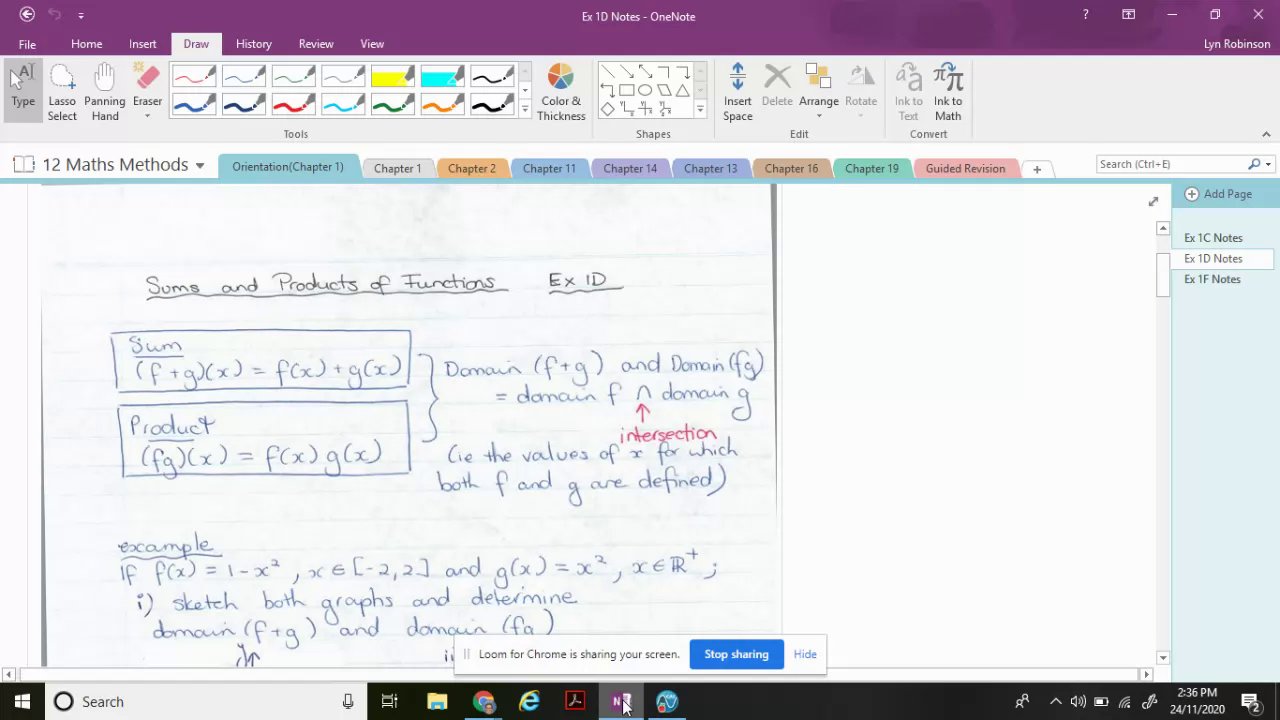 Ex 1D Notes - OneNote
File Home Insert Draw History Review View
Lyn Robinson
Type
Lasso Select
Panning Hand
Eraser
Color & Thickness
Insert Space
Delete
Arrange
Rotate
Ink to Text
Ink to Math
Tools
Shapes
Edit
Convert
12 Maths Methods
Orientation(Chapter 1) Chapter 1 Chapter 2 Chapter 11 Chapter 14 Chapter 13 Chapter 16 Chapter 19 Guided Revision
Search (Ctrl+E)
Add Page
Ex 1C Notes
Ex 1D Notes
Ex 1F Notes
Sums and Products of Functions Ex 1D
Sum
(f+g)(x) = f(x)+g(x)
Product
(fg)(x) = f(x) g(x)
Domain (f+g) and Domain (fg)
= domain f ∩ domain g
↑
intersection
(ie the values of x for which
both f and g are defined)
example
If f(x) = 1-x², x ∈ [-2, 2] and g(x) = x², x ∈ ℝ⁺;
i) sketch both graphs and determine
domain (f+g) and domain (fg)
Loom for Chrome is sharing your screen. Stop sharing Hide
Search
2:36 PM
24/11/2020
2